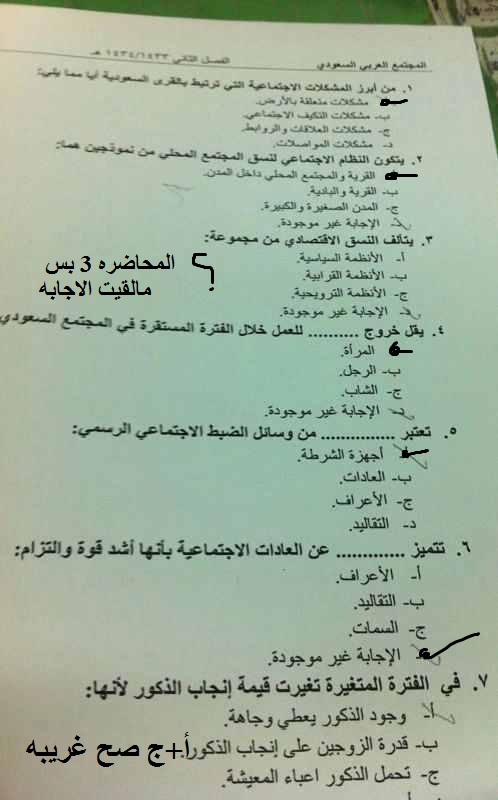 المجتمع العربي السعودي
الفصل الثاني ١٤٣٤/١٤٣٣ هـ
١. من أبرز المشكلات الاجتماعية التي ترتبط بالقرى السعودية أيا مما يلي:
مشكلات متعلقة بالأرض.
ب- مشكلات التكيف الاجتماعي.
ج- مشكلات العلاقات والروابط.
د- مشكلات المواصلات.
٢. يتكون النظام الاجتماعي لنسق المجتمع المحلي من نموذجين هما:
القرية والمجتمع المحلي داخل المدن.
ب- القرية والبادية.
ج- المدن الصغيرة والكبيرة.
د- الإجابة غير موجودة.
٣. يتألف النسق الاقتصادي من مجموعة:
أ- الأنظمة السياسية.
ب- الأنظمة القرابية.
ج- الأنظمة الترويحية.
د- الإجابة غير موجودة.
المحاضره 3 بس
مالقيت الاجابه
؟
٤. يقل خروج .......... للعمل خلال الفترة المستقرة في المجتمع السعودي
المرأة.
ب- الرجل.
ج- الشاب.
د- الإجابة غير موجودة.
٥. تعتبر ............... من وسائل الضبط الاجتماعي الرسمي:
أجهزة الشرطة.
ب- العادات.
ج- الأعراف.
د- التقاليد.
٦. تتميز ............. عن العادات الاجتماعية بأنها أشد قوة والتزام:
أ- الأعراف.
ب- التقاليد.
ج- السمات.
الإجابة غير موجودة.
٧. في الفترة المتغيرة تغيرت قيمة إنجاب الذكور لأنها:
أ- وجود الذكور يعطي وجاهة.
ب- قدرة الزوجين على إنجاب الذكور.
أ+ج صح غريبه
ج- تحمل الذكور اعباء المعيشة.